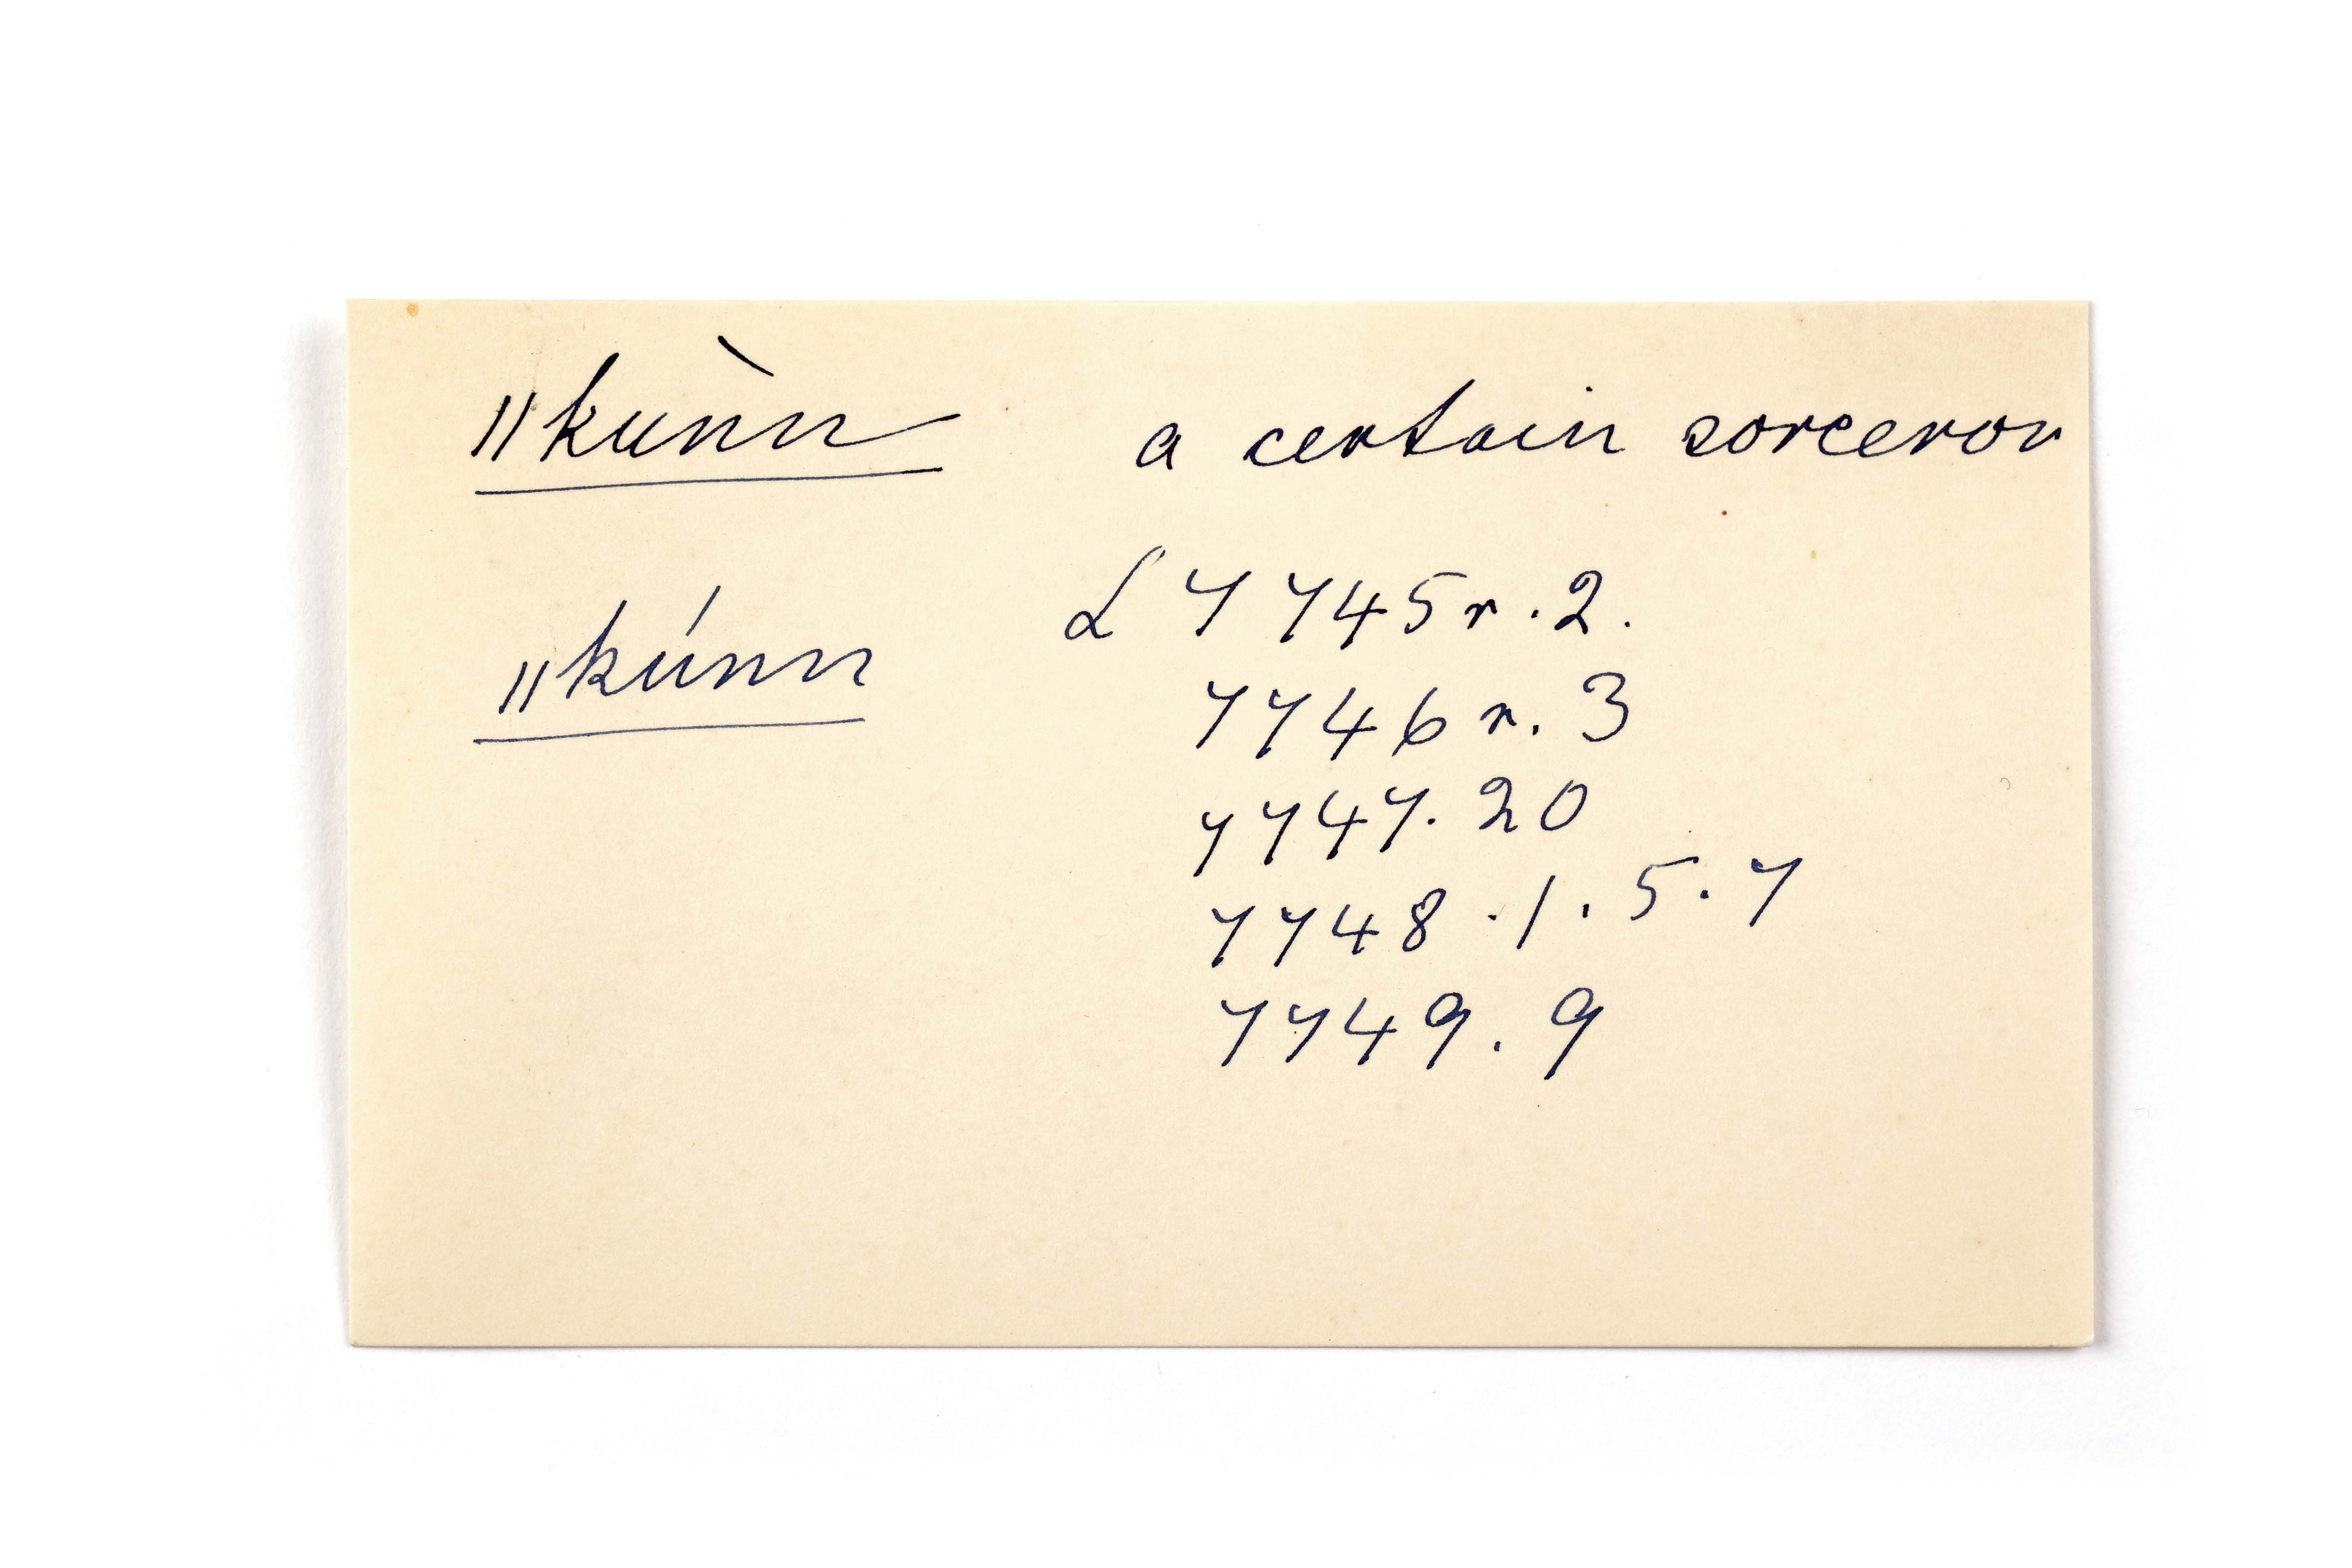 ǁkùnn a certain sorceror
L 7 745 r. 2.
ǁkúnn
7746 r. 3
7747. 20
7748 . 1 . 5 . 7
7749. 9